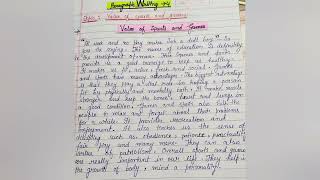 Paragraph Writing
Topic: Value of sports and games
Value of Sports and Games
"All work and no play makes Jack a dull boy" is
too its saying. The name of education is definitely
the development of man. This Games and sports
provide us a good manner to keep us healthy.
It makes us fit, active, fresh and social. Games
and sports have many advantages. The biggest advantage
is that they play a vital role in helping a human
fit by physically and mentally both. It makes muscle
stronger and keep the bones, heart and lungs in
a good condition. Games and sports also help the
people to relax and forget about their problems
for a while. It provides recreation and
enjoyment. It also teaches us the sense of
disciplines such as obedience, patience, punctuality,
fair play and many more. They can also
of patriotism. Overall sports and games
are really important in our life. They help in
the growth of body, mind & personality.